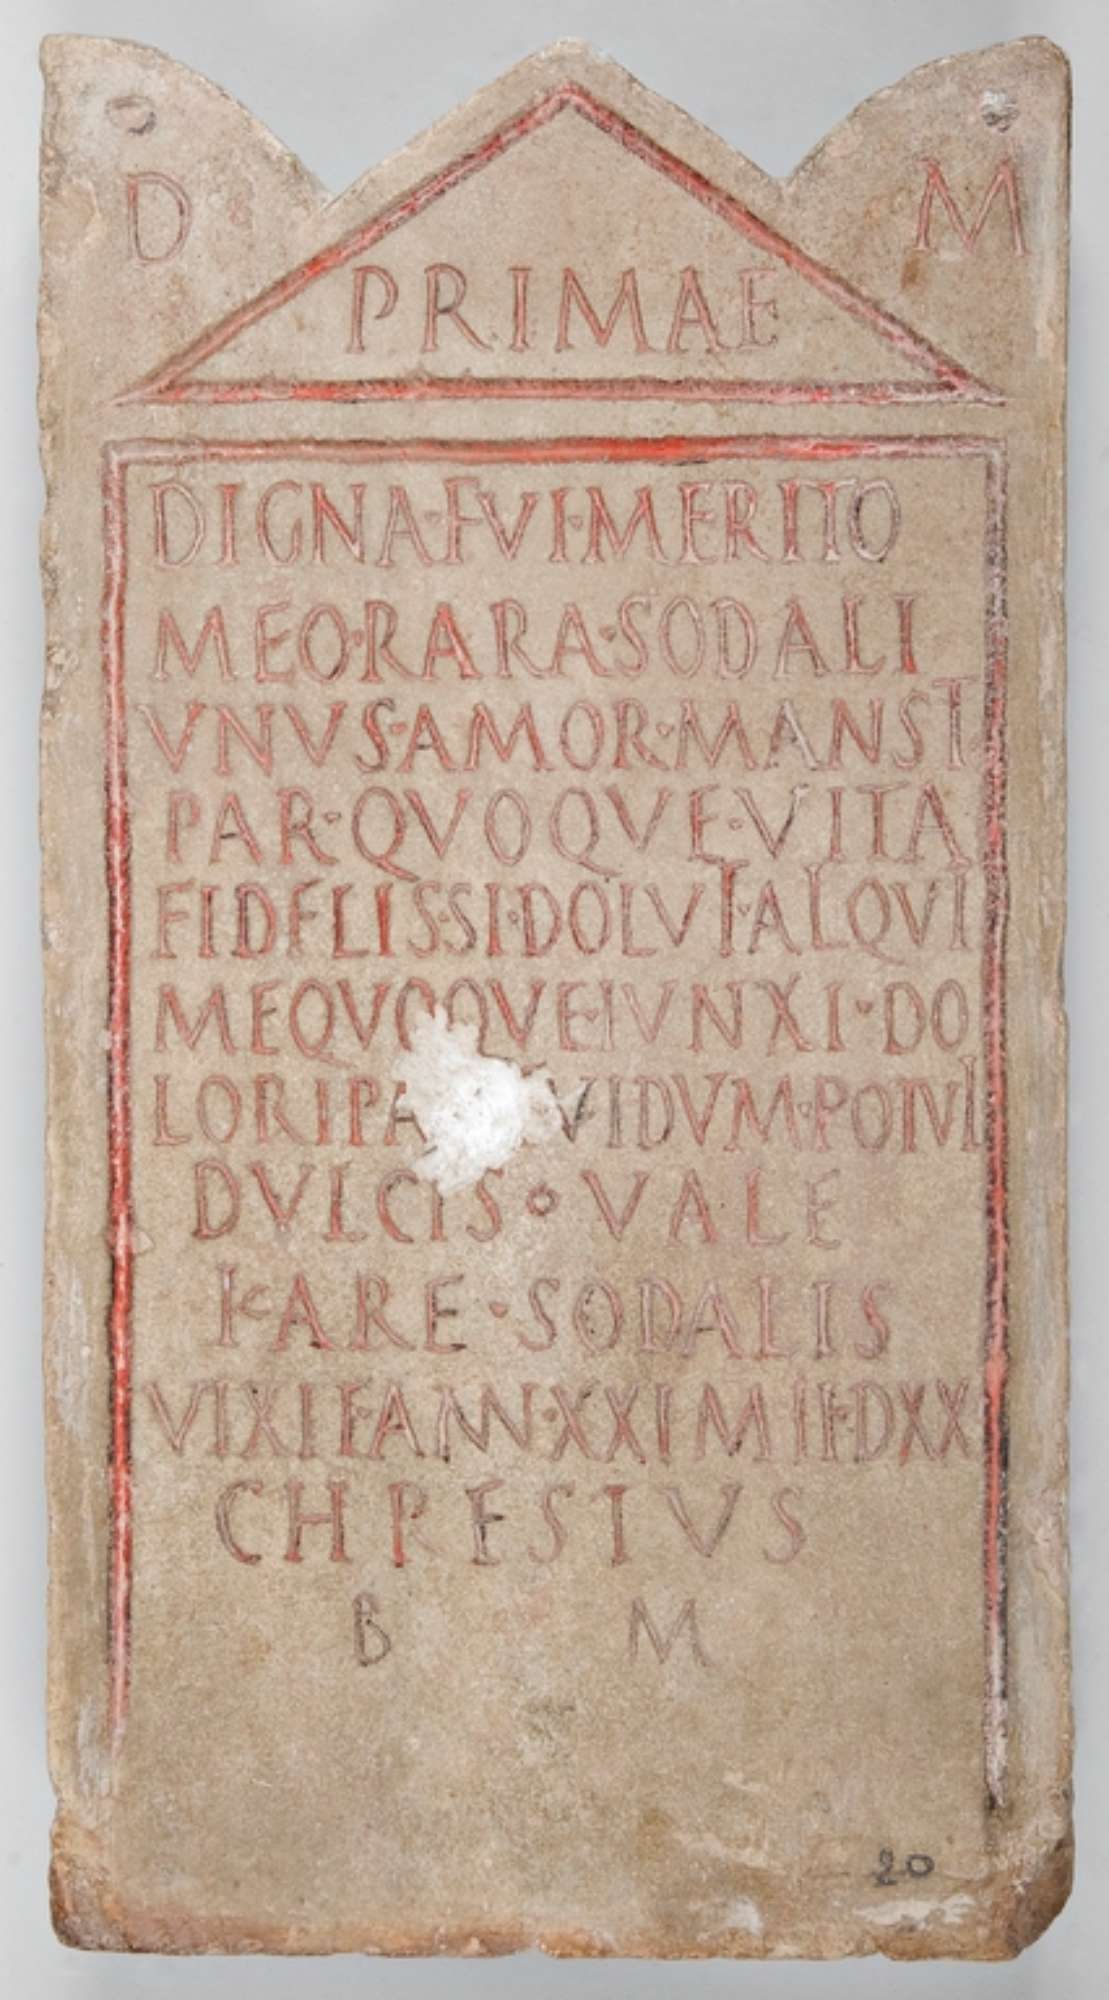 D M
PRIMAE
DIGNA·FVI·MERITO
MEO·RARA·SODALI
VNVS·AMOR·MANST
PAR·QVOQVE·VITA
FIDELIS·SI·DOLVI·ALQVI
MEQVOQVE·IVNXI·DO
LORI VIDVM·POTVI
DVLCIS·VALE
KARE·SODALIS
VIXIT·ANN·XXI M II·DXX
CHRESTVS
B M
20